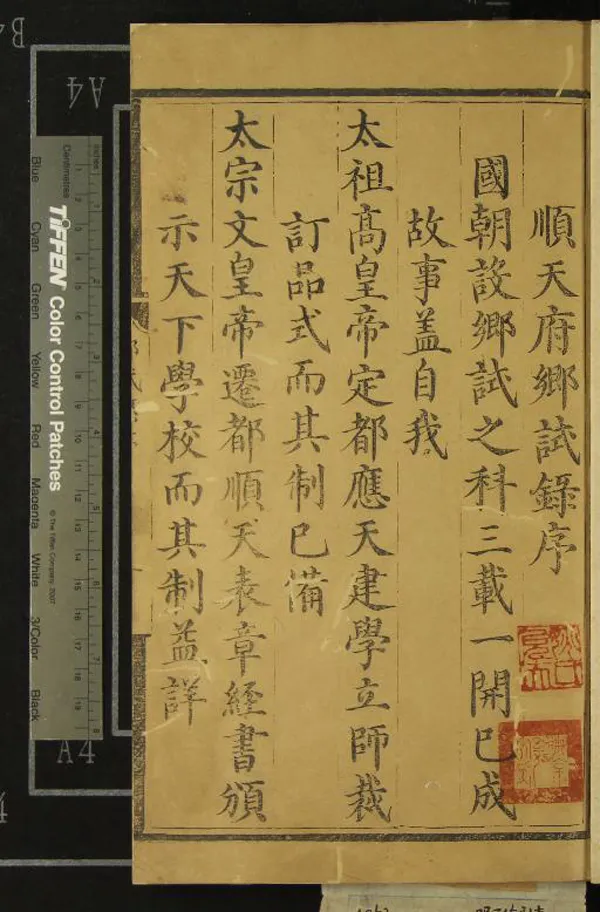 順天府鄉試錄序
國朝設鄉試之科三載一開巳成
故事盖自我
太祖高皇帝定都應天建學立師裁
訂品式而其制巳備
太宗文皇帝遷都順天表章經書頒
示天下學校而其制益詳
B4
A4
inches
Centimetres
TIFFEN Color Control Patches
© The Tiffen Company, 2007
Blue
Cyan
Green
Yellow
Red
Magenta
White
3/Color
Black
A4